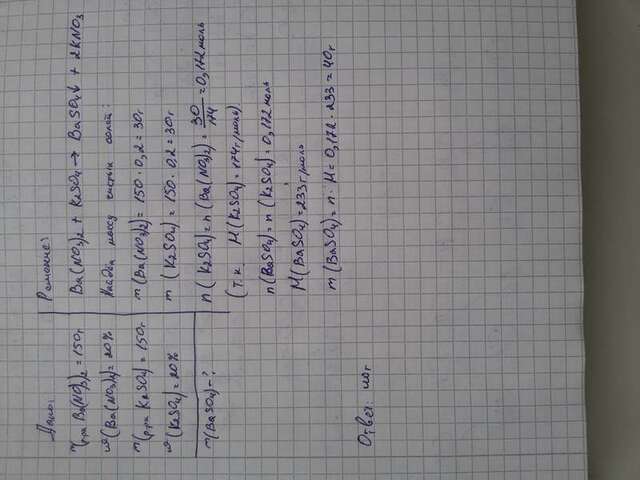 Дано:
m(р-ра Ba(NO3)2 = 150г
ω(Ba(NO3)2) = 20%
m(р-ра K2SO4) = 150г
ω(K2SO4) = 20%
m(BaSO4) - ?
Решение:
Ba(NO3)2 + K2SO4 → BaSO4↓ + 2KNO3
Найдем массу чистых солей:
m(Ba(NO3)2) = 150 · 0,2 = 30г
m(K2SO4) = 150 · 0.2 = 30г
n(K2SO4) = n(Ba(NO3)2) = 30/174 = 0,172 моль
(т.к. M(K2SO4) = 174 г/моль)
n(BaSO4) = n(K2SO4) = 0,172 моль
M(BaSO4) = 233 г/моль
m(BaSO4) = n · M = 0,172 · 233 = 40г
Ответ: 40г